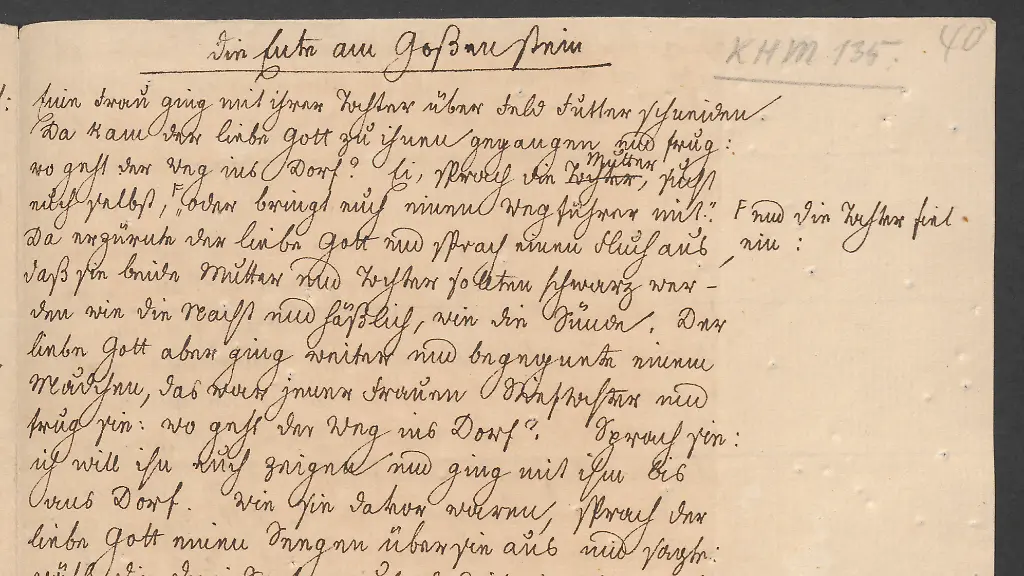 die Ente am Goßenstein
KHM 135.
40
Eine Frau ging mit ihrer Tochter über Feld Futter schneiden.
Da kam der liebe Gott zu ihnen gegangen und frug:
Mutter
wo geht der Weg ins Dorf? Ei, sprach die Tochter, sucht
euch selbst, F „oder bringt euch einen Wegführer mit“.
F und die Tochter fiel
ein:
Da erzürnte der liebe Gott und sprach einen Fluch aus,
daß sie beide Mutter und Tochter sollten schwarz wer-
den wie die Nacht und häßlich, wie die Sünde. Der
liebe Gott aber ging weiter und begegnete einem
Mädchen, das war jener Frauen Stieftochter und
frug sie: wo geht der Weg ins Dorf? Sprach sie:
ich will ihn euch zeigen und ging mit ihm bis
ans Dorf. Wie sie davor waren, sprach der
liebe Gott einen Seegen über sie aus und sagte: